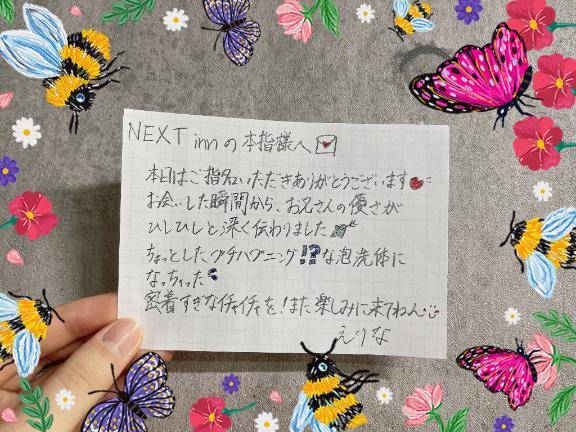 NEXT innの本指様へ💌
本日はご指名いただきありがとうございます
お会いした瞬間から、お兄さんの優さが
ひしひしと深く伝わりました
ちょっとしたプチハプニング⁉な泡洗体に
なっちゃった
密着すぎなイチャイチャを!また楽しみに来てねん
えりな